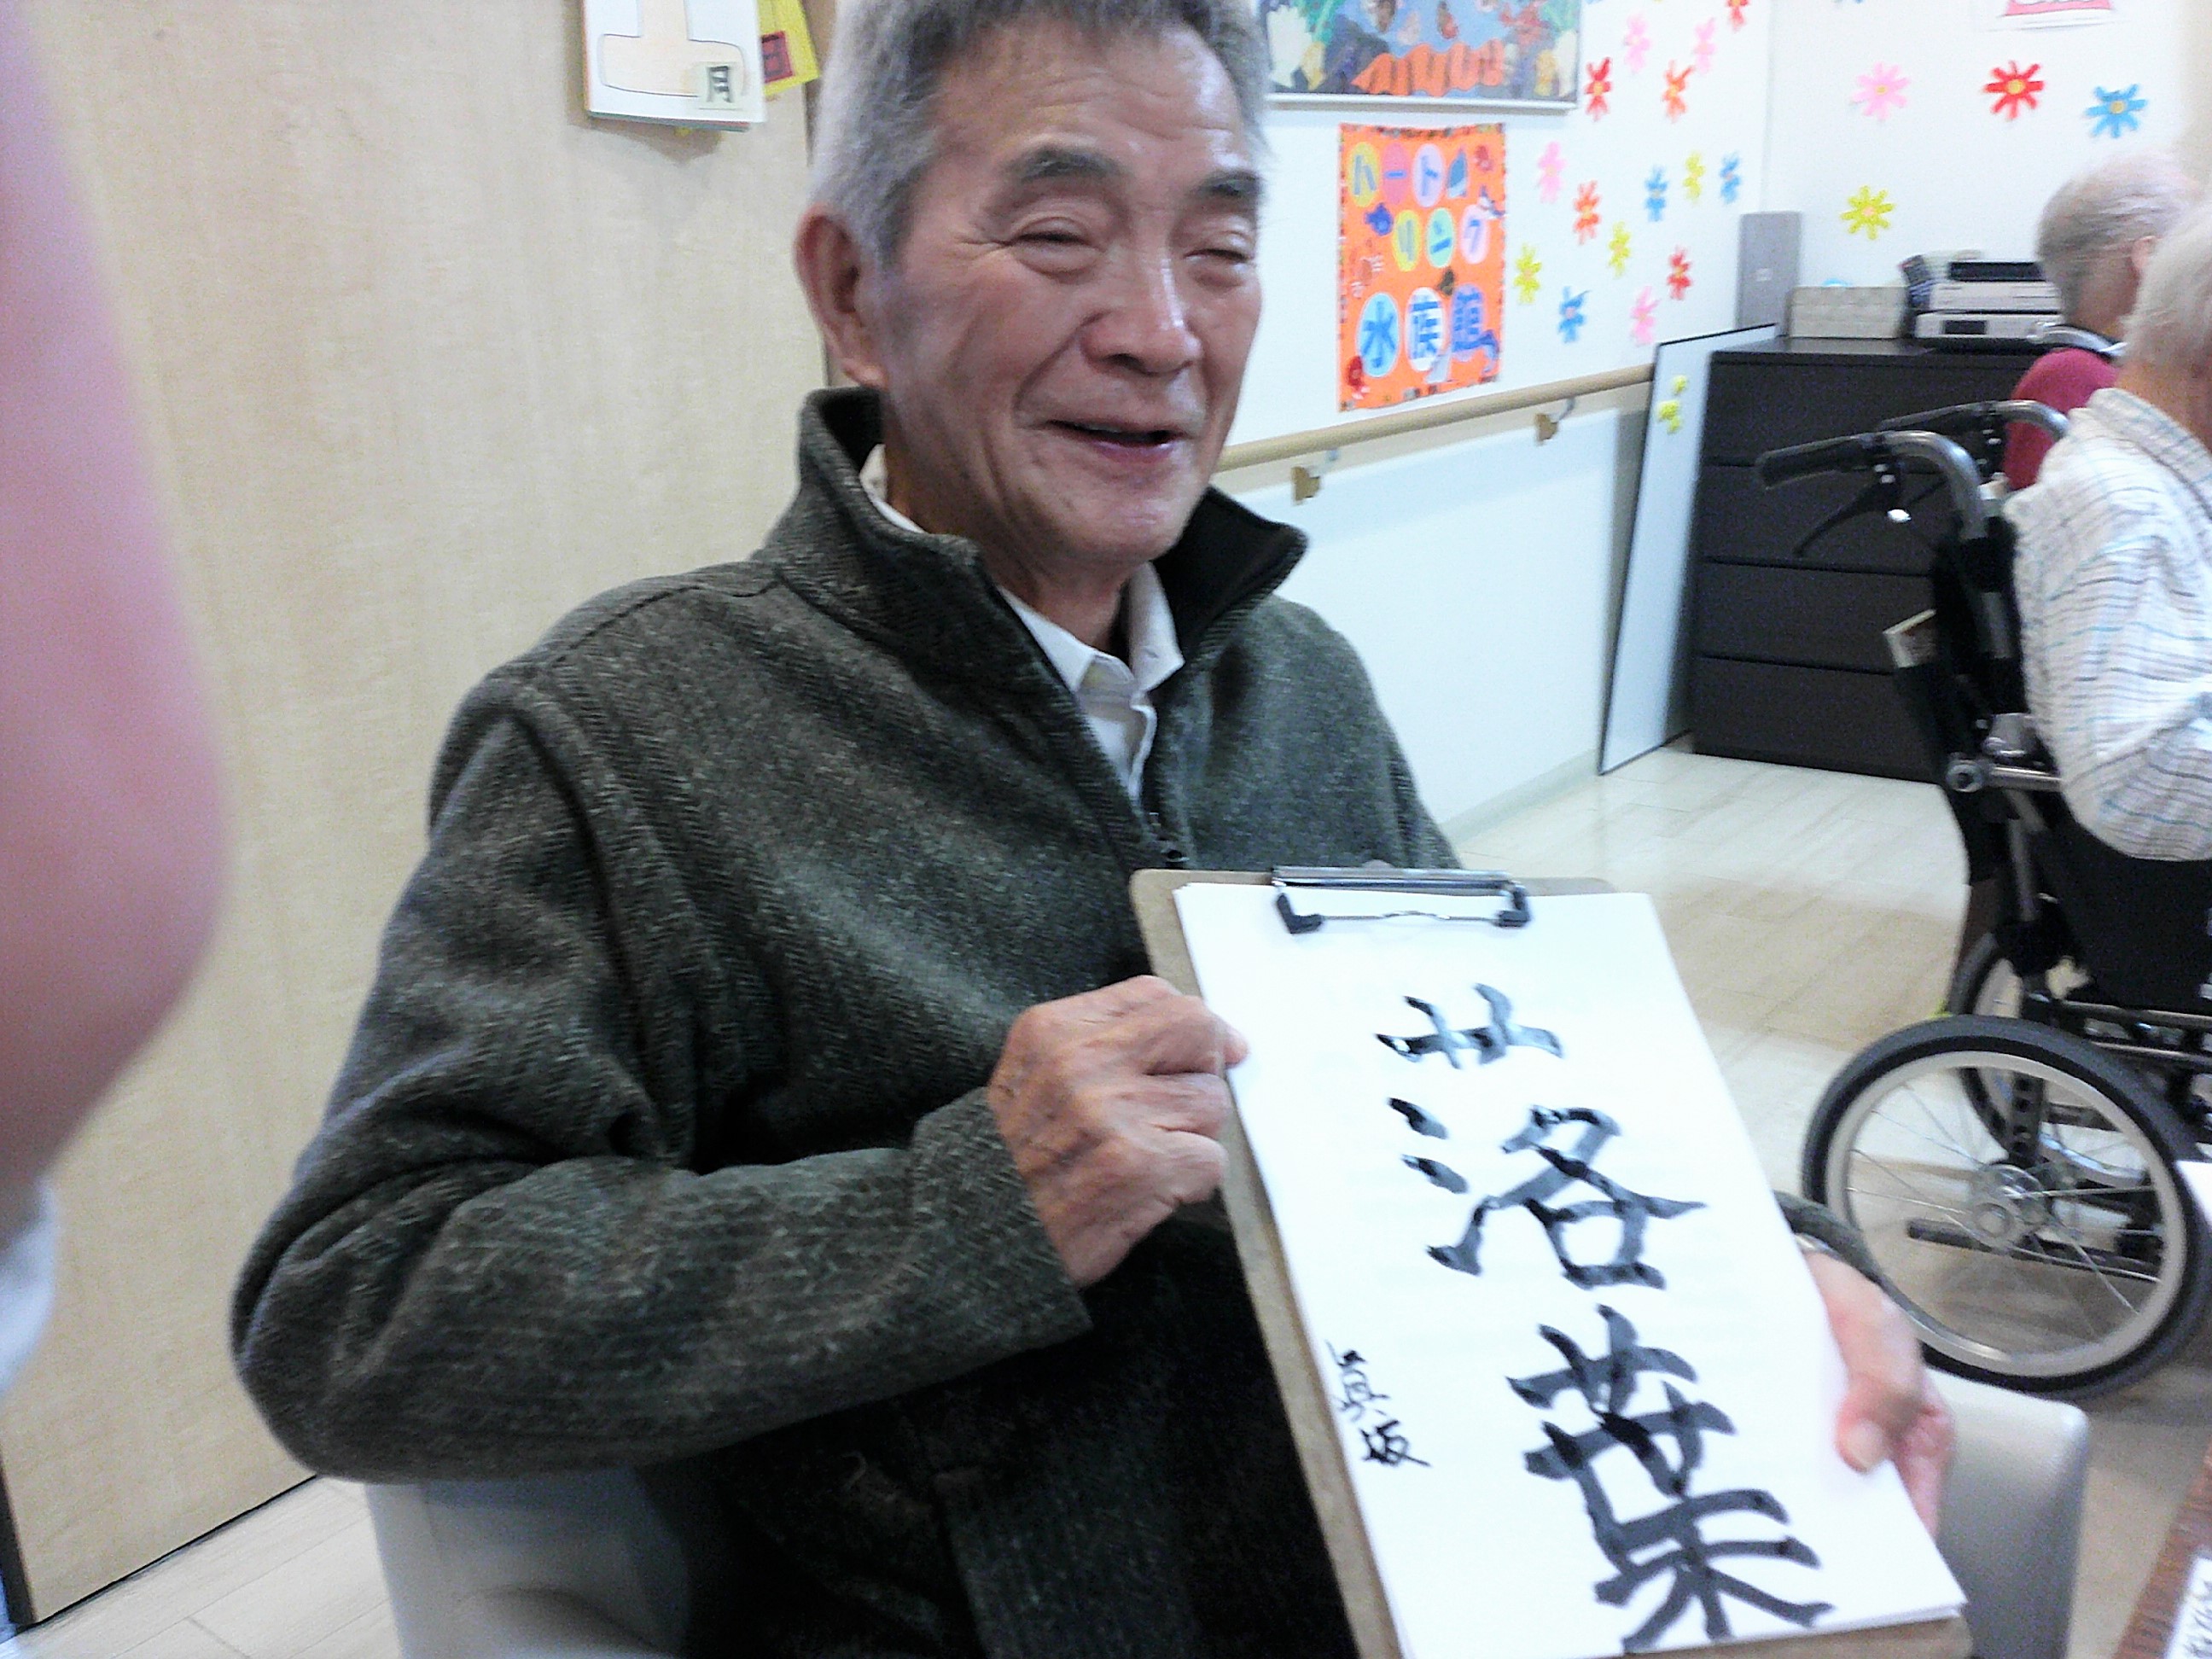 月
日
ハート
リング
水族館
落葉
眞坂